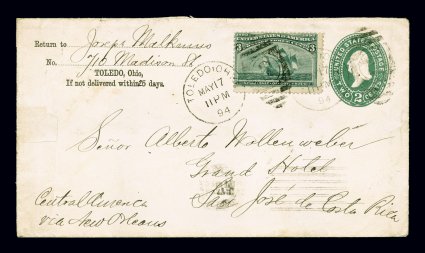 Return to Joseph Malkmus
No. 716 Madison St
TOLEDO, Ohio,
If not delivered within 5 days.
TOLEDO, OH
MAY 17
11 PM
94
3 UNITED STATES OF AMERICA 3
UNITED STATES POSTAGE
TWO 2 CENTS
Señor Alberto Wollenweber
Grand Hotel
San José de Costa Rica
Central America
via New Orleans